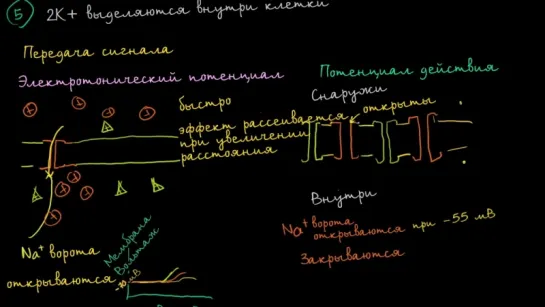 5 2К+ выделяются внутри клетки
Передача сигнала
Электротонический потенциал
быстро
эффект рассеивается
при увеличении
расстояния
Na+ ворота
открываются
Мембрана
Вольтаж
Потенциал действия
Снаружи
открыты
Внутри
Na+ ворота
открываются при -55 мВ
Закрываются